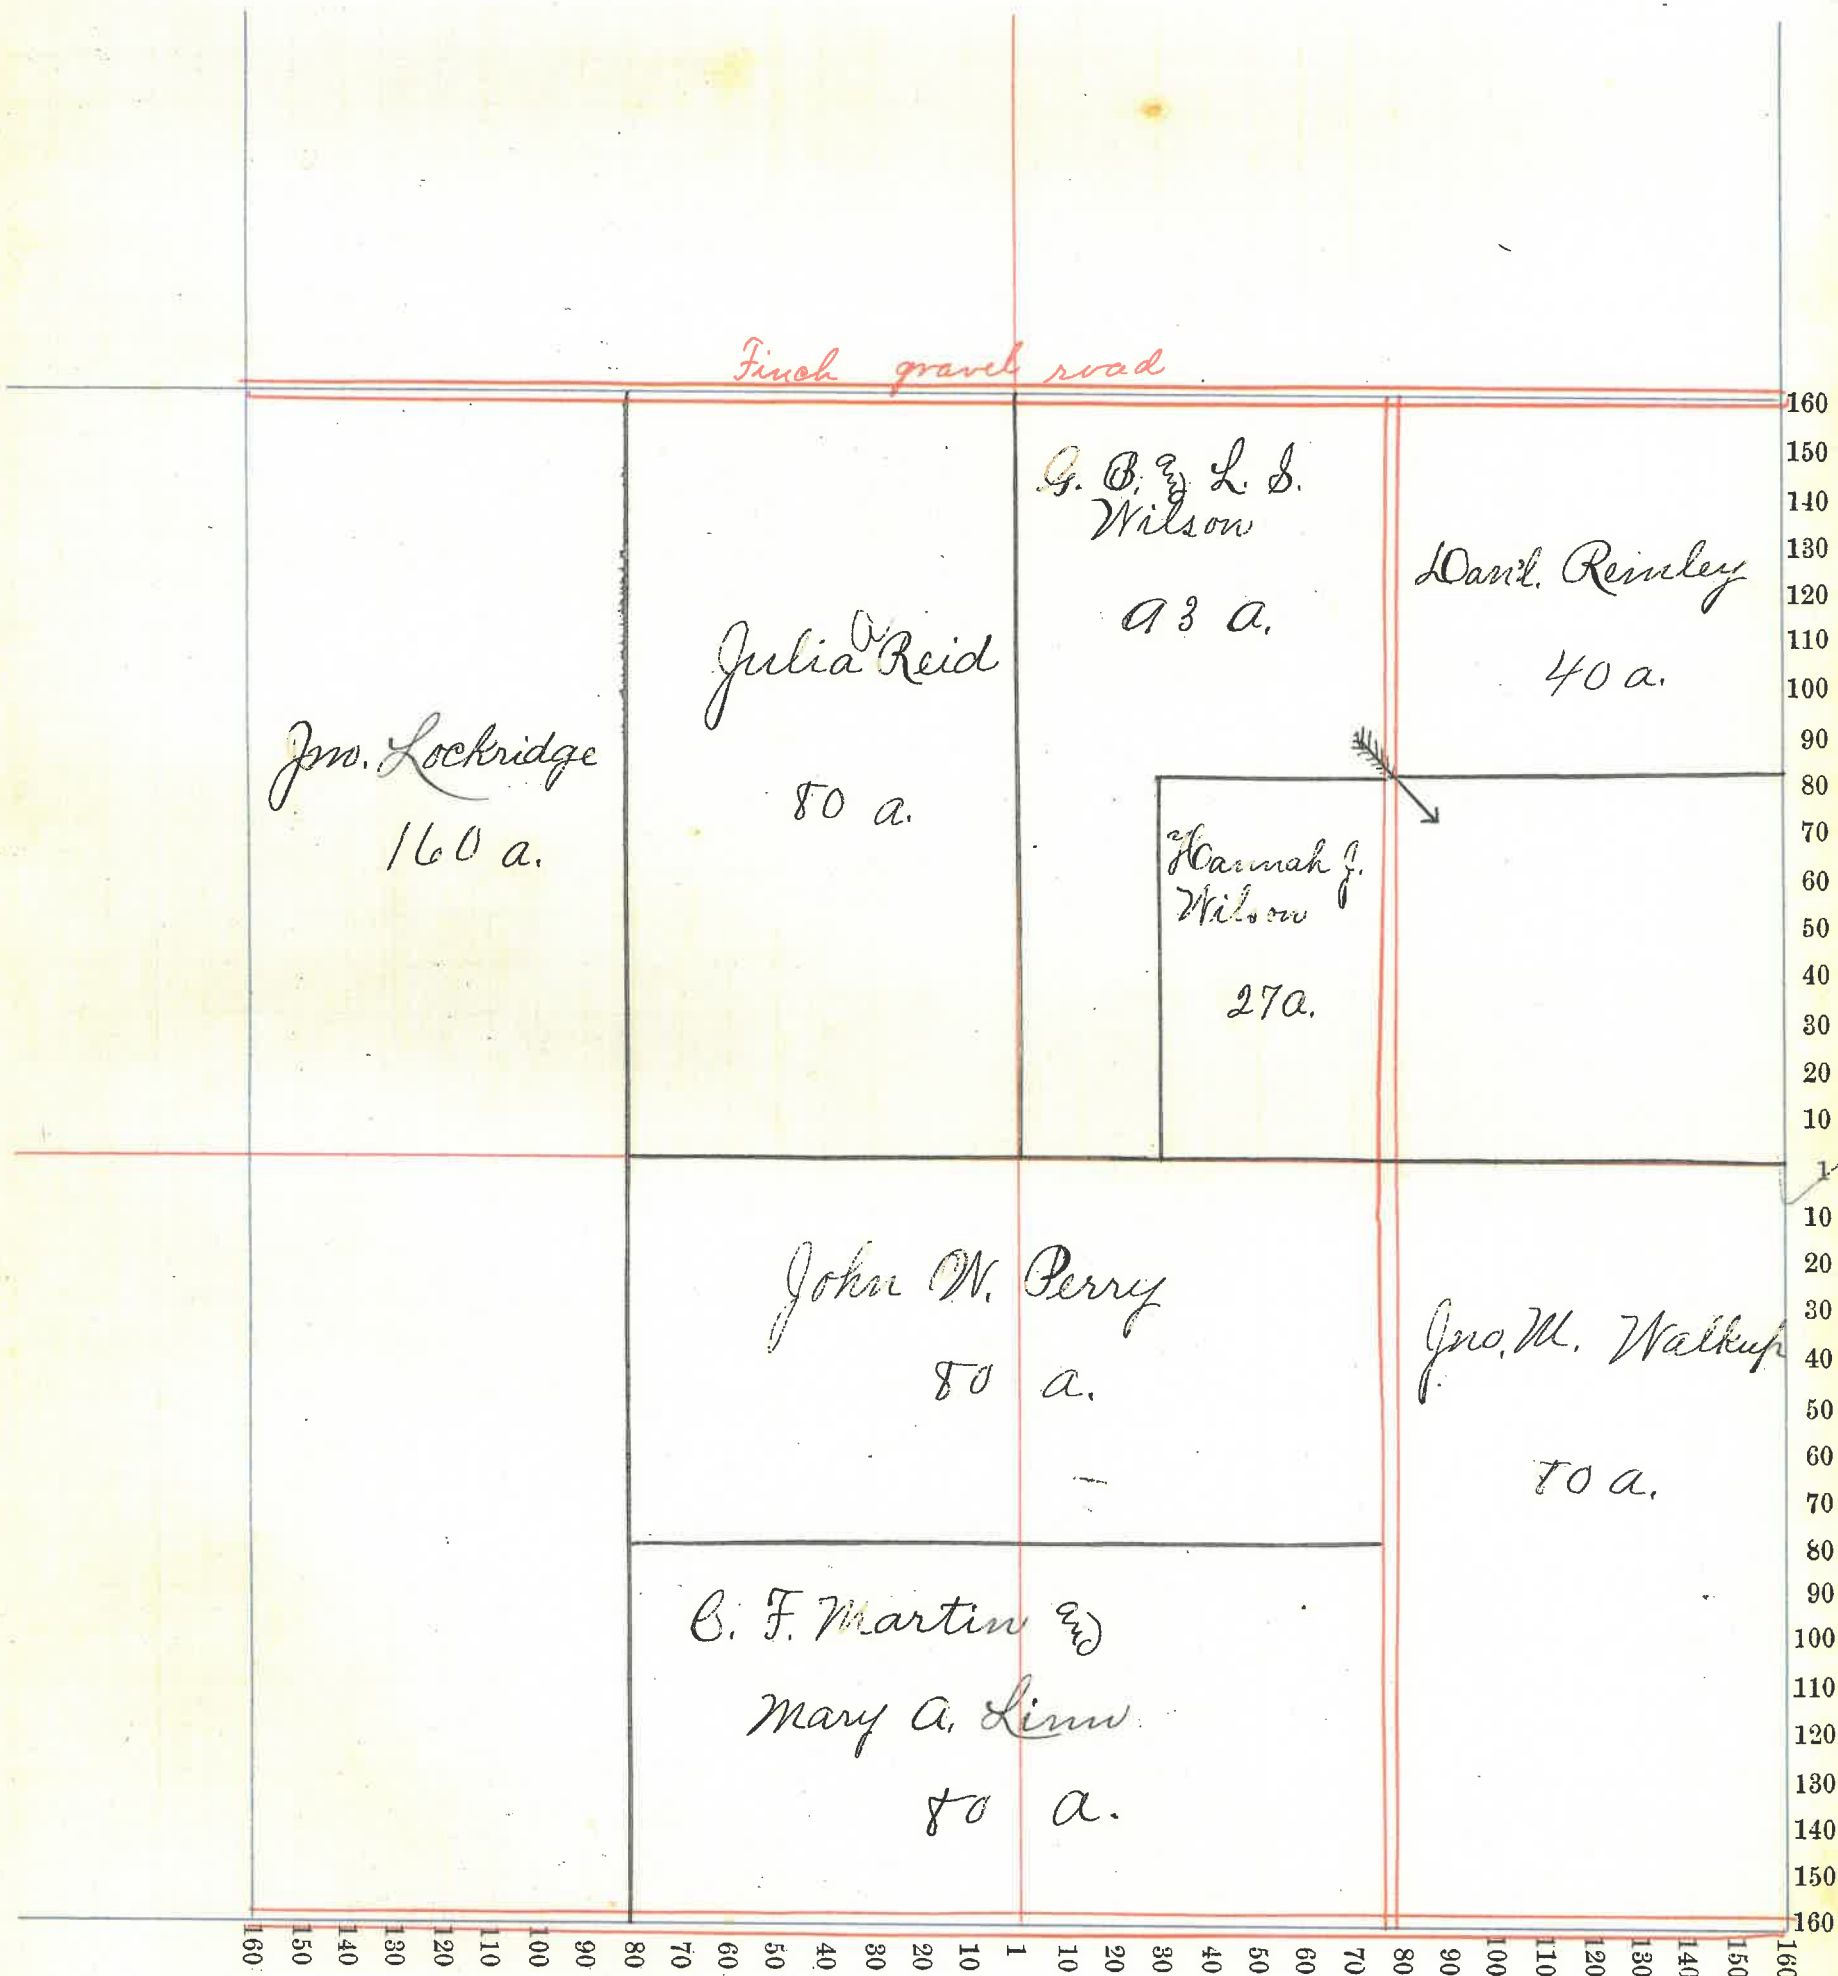 Finch gravel road
G. B. & L. S.
Wilson
93 a.
Dan'l. Remley
40 a.
Julia A Reid
80 a.
Jno. Lockridge
160 a.
Hannah J.
Wilson
27 a.
John W. Perry
80 a.
Jno. M. Walkup
80 a.
C. F. Martin &
Mary A. Linn
80 a.
160
150
140
130
120
110
100
90
80
70
60
50
40
30
20
10
1
10
20
30
40
50
60
70
80
90
100
110
120
130
140
150
160
160 150 140 130 120 110 100 90 80 70 60 50 40 30 20 10 1 10 20 30 40 50 60 70 80 90 100 110 120 130 140 150 160